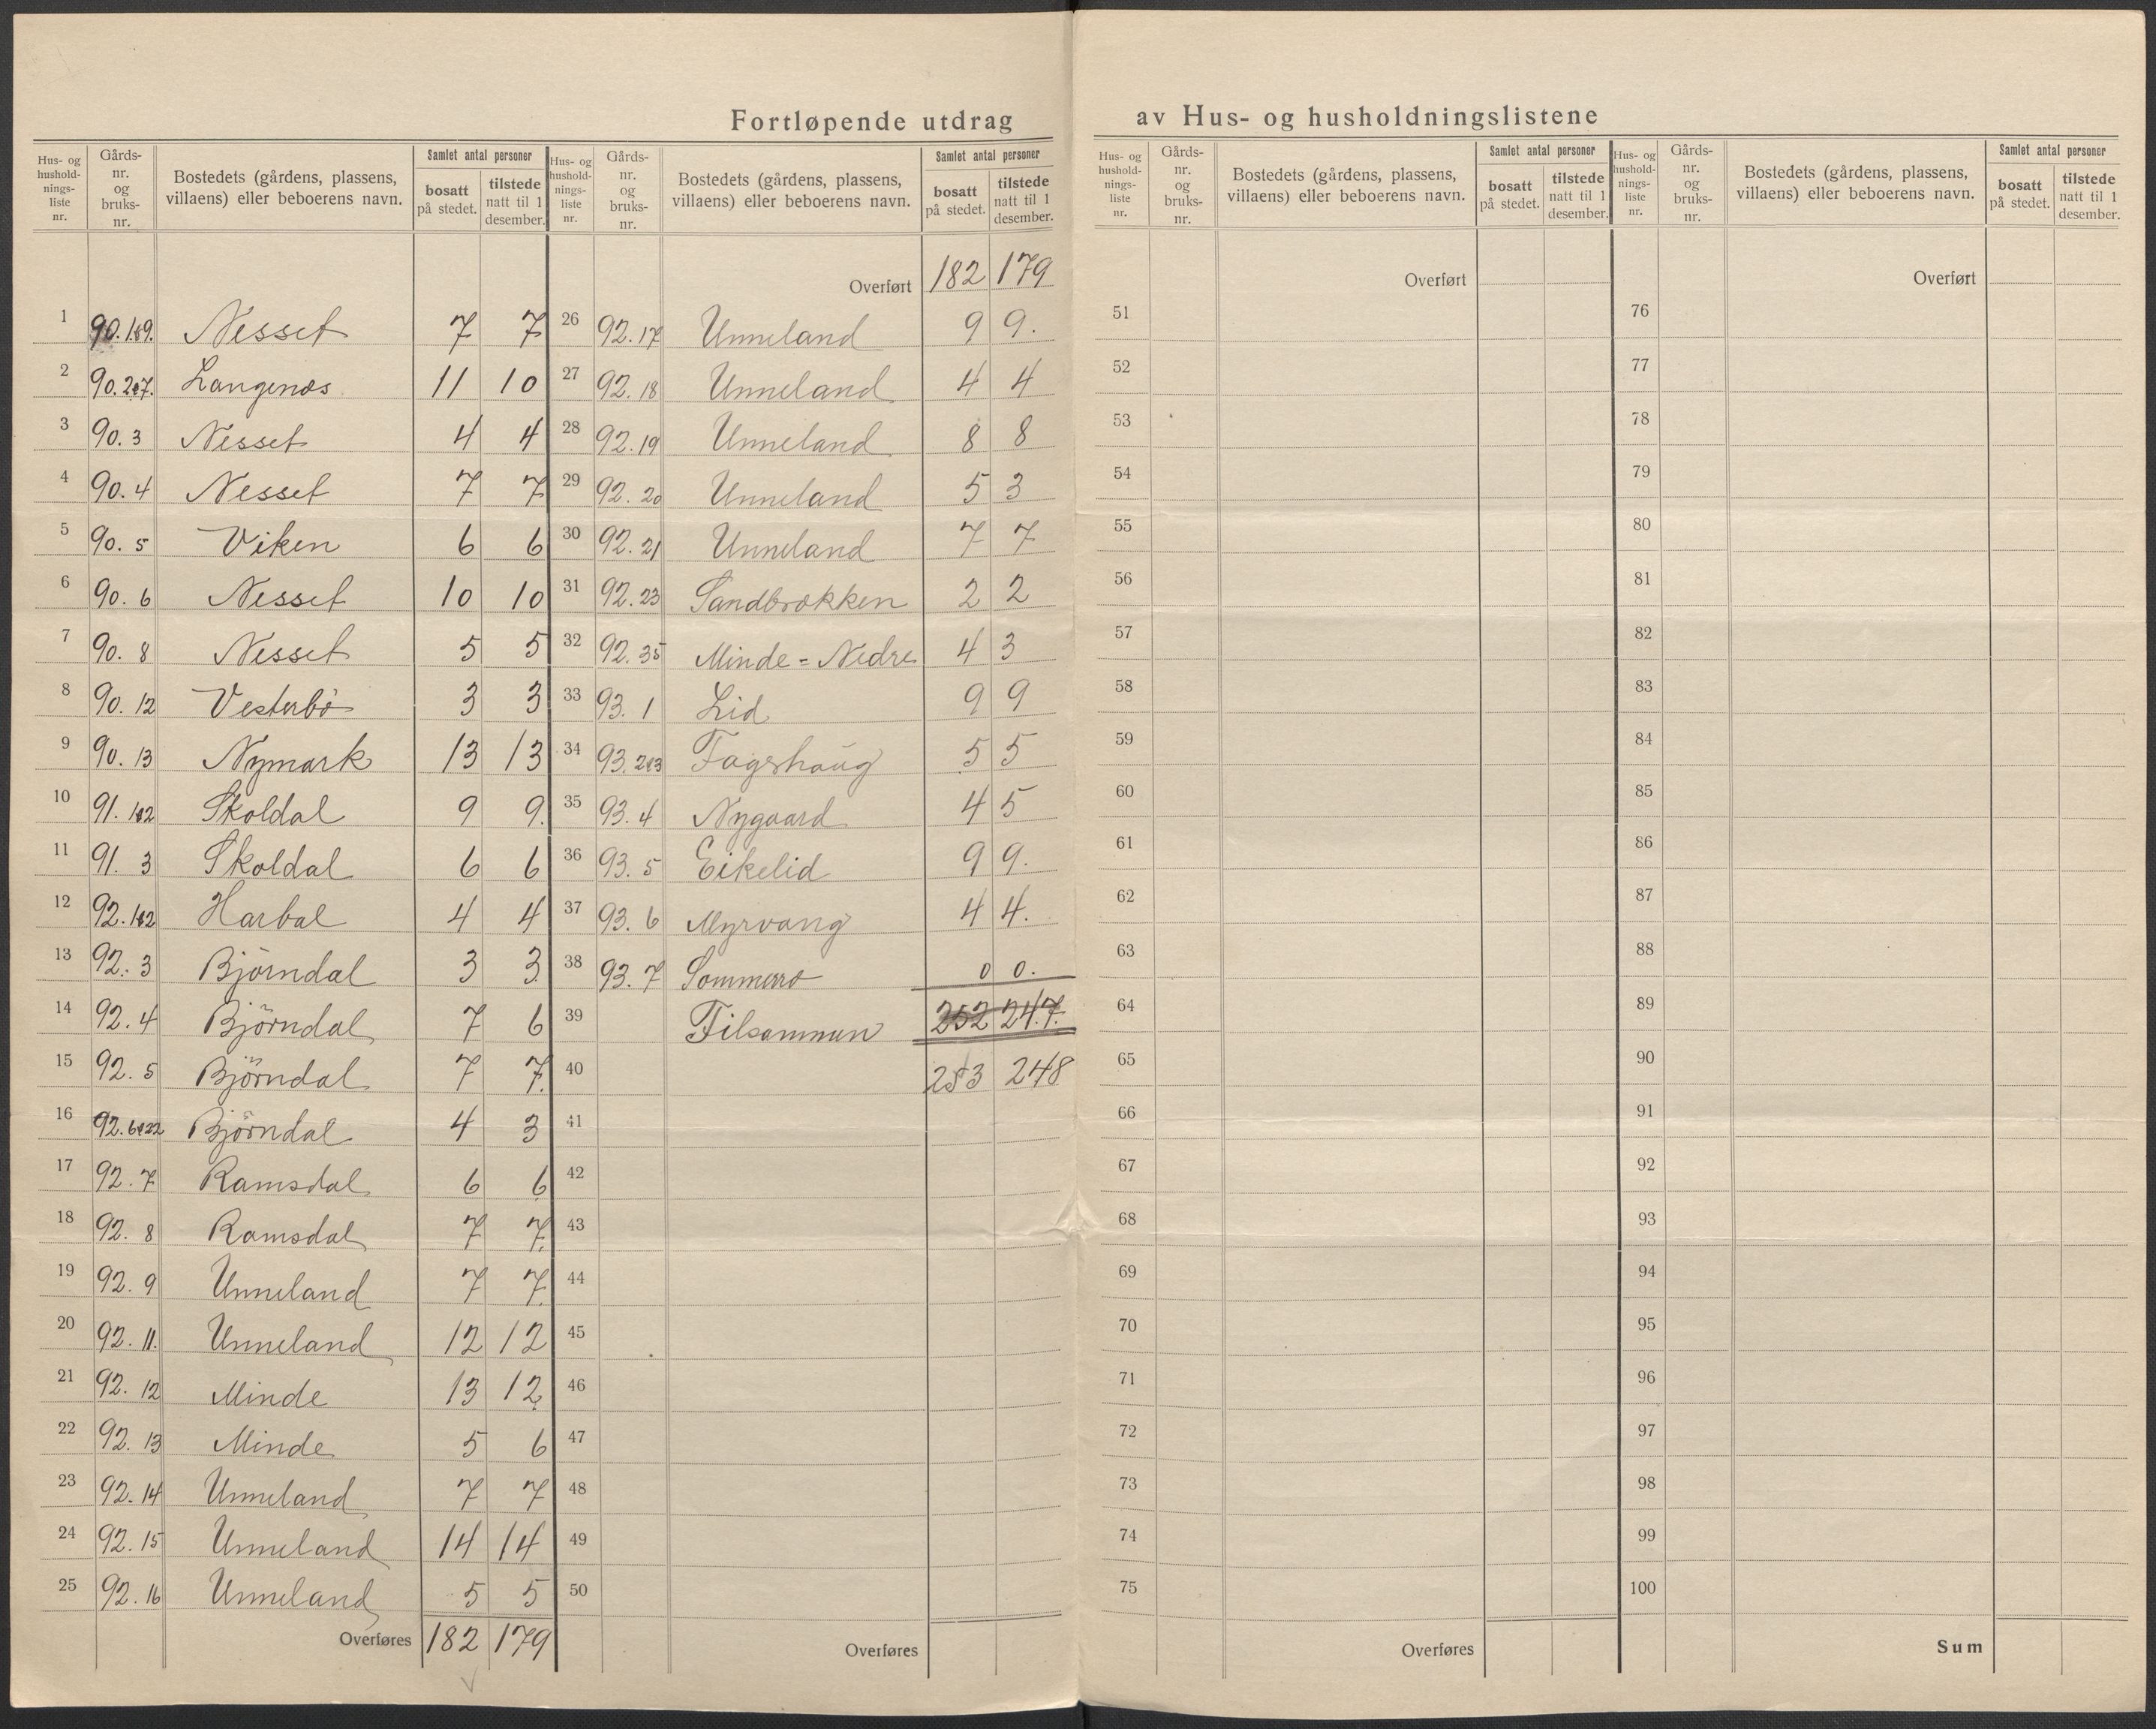 Fortløpende utdrag av Hus- og husholdningslistene
Hus- og hushold-nings-liste nr. Gårds-nr. og bruks-nr. Bostedets (gårdens, plassens, villaens) eller beboerens navn. Samlet antal personer bosatt på stedet. tilstede natt til 1 desember.
1 90.1&9. Nesset 7 7
2 90.2&7. Langenes 11 10
3 90.3 Nesset 4 4
4 90.4 Nesset 7 7
5 90.5 Viken 6 6
6 90.6 Nesset 10 10
7 90.8 Nesset 5 5
8 90.12 Vesterbö 3 3
9 90.13 Nymark 13 13
10 91.1&2 Skoldal 9 9.
11 91.3 Skoldal 6 6
12 92.1&2 Harbal 4 4
13 92.3 Björndal 3 3
14 92.4 Björndal 7 6
15 92.5 Björndal 7 7.
16 92.6&22 Björndal 4 3
17 92.7 Ramsdal 6 6
18 92.8 Ramsdal 7 7.
19 92.9 Unneland 7 7.
20 92.11. Unneland 12 12
21 92.12 Minde 13 12
22 92.13 Minde 5 6
23 92.14 Unneland 7 7
24 92.15 Unneland 14 14
25 92.16 Unneland 5 5
Overføres 182 179
Hus- og hushold-nings-liste nr. Gårds-nr. og bruks-nr. Bostedets (gårdens, plassens, villaens) eller beboerens navn. Samlet antal personer bosatt på stedet. tilstede natt til 1 desember.
Overført 182 179
26 92.17 Unneland 9 9.
27 92.18 Unneland 4 4
28 92.19 Unneland 8 8
29 92.20 Unneland 5 3
30 92.21 Unneland 7 7
31 92.23 Sandbrekken 2 2
32 92.35 Minde = Nedre 4 3
33 93.1 Lid 9 9
34 93.2&3 Fagerhaug 5 5
35 93.4 Nygaard 4 5
36 93.5 Eikelid 9 9.
37 93.6 Myrvang 4 4.
38 93.7 Sommerro 0 0.
39 Tilsammen 252 247.
40 253 248
41
42
43
44
45
46
47
48
49
50
Overføres
Hus- og hushold-nings-liste nr. Gårds-nr. og bruks-nr. Bostedets (gårdens, plassens, villaens) eller beboerens navn. Samlet antal personer bosatt på stedet. tilstede natt til 1 desember.
Overført
51
52
53
54
55
56
57
58
59
60
61
62
63
64
65
66
67
68
69
70
71
72
73
74
75
Overføres
Hus- og hushold-nings-liste nr. Gårds-nr. og bruks-nr. Bostedets (gårdens, plassens, villaens) eller beboerens navn. Samlet antal personer bosatt på stedet. tilstede natt til 1 desember.
Overført
76
77
78
79
80
81
82
83
84
85
86
87
88
89
90
91
92
93
94
95
96
97
98
99
100
Sum